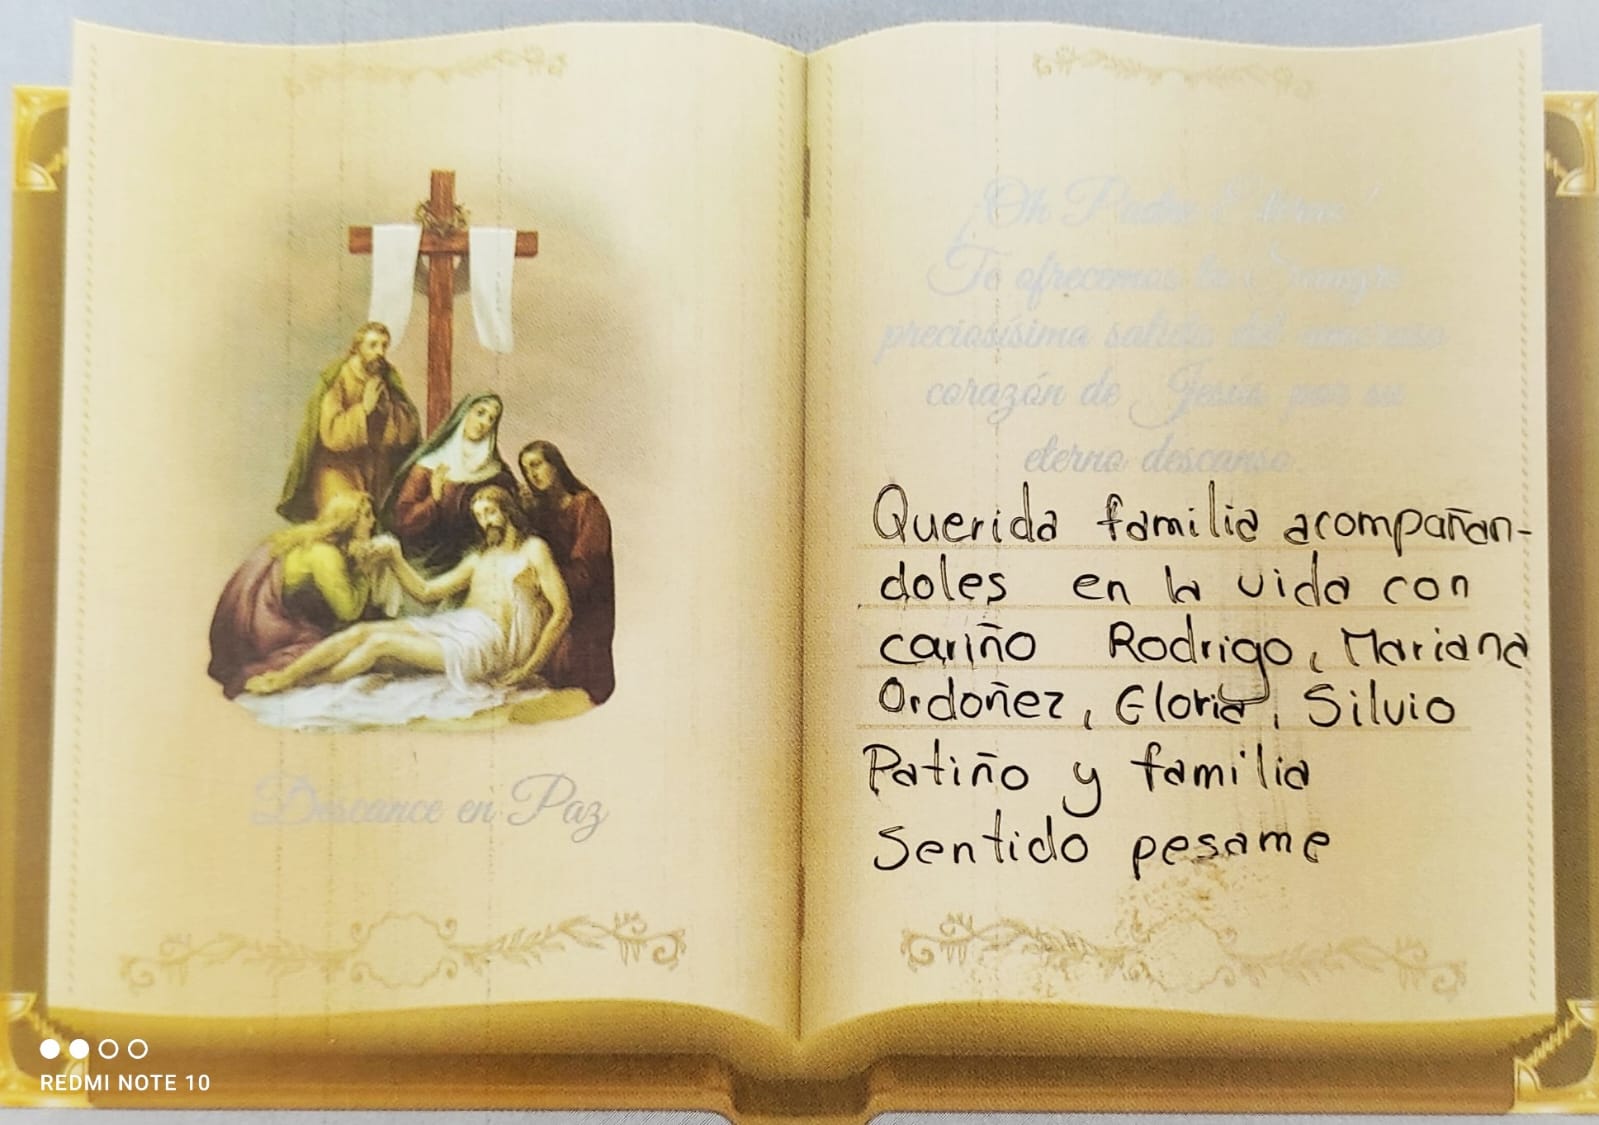 Descance en Paz
¡Oh Padre Eterno!
Te ofrecemos la Sangre
preciosísima salida del amoroso
corazón de Jesús por su
eterno descanso.
Querida familia acompañan-
doles en la vida con
cariño Rodrigo, Mariana
Ordoñez, Gloria, Silvio
Patiño y familia
Sentido pesame
REDMI NOTE 10